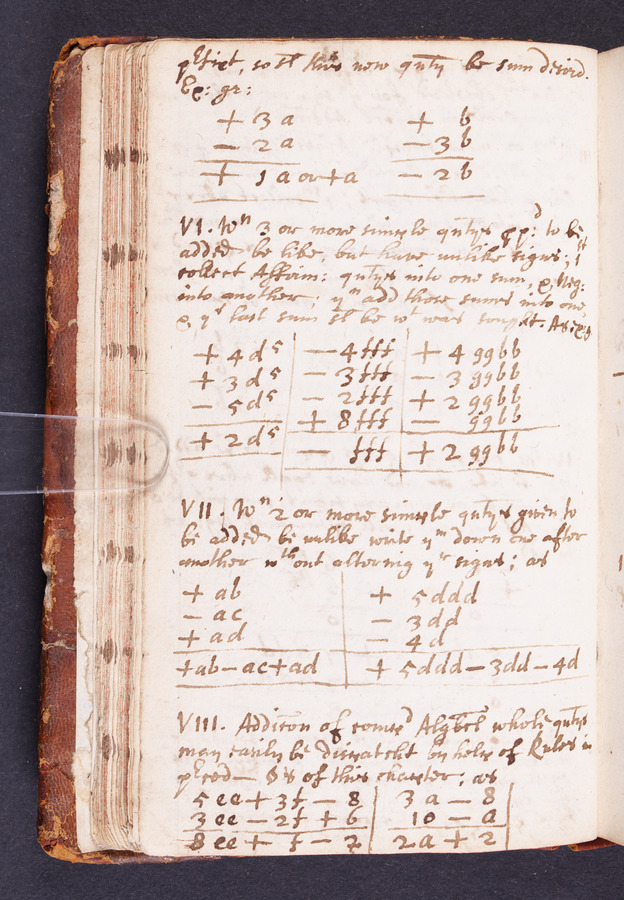 prefixt, so sll this new qnty be sum desird.
Ex: gr:
+ 3 a + b
− 2 a − 3 b
+ 1 a or + a − 2 b
VI. Wn 3 or more simple qntys to be
added be like, but have unlike signs; 1st
collect Affirm: qntys into one sum, & Neg:
into another; yn add those sums into one,
& ys last sum sll be wt was sought. As
+ 4 d5 − 4 fff + 4 ggbb
+ 3 d5 − 3 fff − 3 ggbb
− 5 d5 − 2 fff + 2 ggbb
+ 8 fff − ggbb
+ 2 d5 − fff + 2 ggbb
VII. Wn 2 or more simple qntys given to
be added be unlike write ym down one after
another wthout altering yr signs; as
+ ab + 5 ddd
− ac − 3 dd
+ ad − 4 d
+ab − ac + ad + 5 ddd − 3dd − 4d
VIII. Additon of compd Algbcl whole qntys
may easily be dispatcht by help of Rules in
preced S's of this chapter; as
5 ee + 3 f − 8 3 a − 8
3 ee − 2 f + 6 10 − a
8 ee + f − 2 2 a + 2